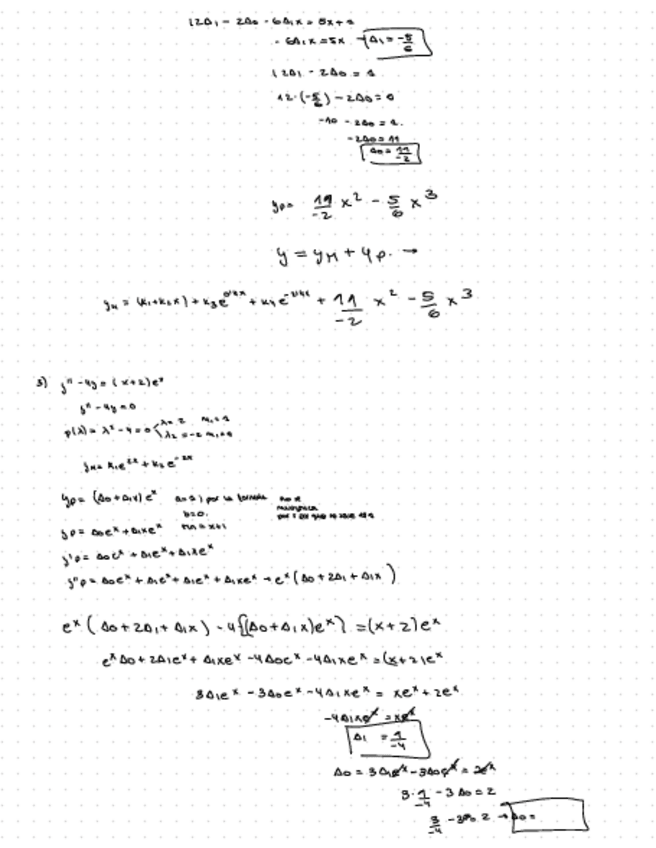 12A₁ - 2A₀ - 6A₁x = 5x + 1
- 6A₁x = 5x → A₁ = -5/6
12A₁ - 2A₀ = 1
12·(-5/6) - 2A₀ = 1
-10 - 2A₀ = 1.
-2A₀ = 11
A₀ = 11/-2
yp = 11/-2 x² - 5/6 x³
y = yH + yp. →
yH = (K₁+K₂x) + K₃e + K₄e + 11/-2 x² - 5/6 x³
3) y'' - 4y = (x+2)eˣ
y'' - 4y = 0
p(λ) = λ² - 4 = 0 λ = 2 m₁=1
λ₂ = -2 m₁=1
yH = K₁e²ˣ + K₂e⁻²ˣ
yp = (A₀ + A₁x)eˣ a=1) por la formula no
b=0.
yp = A₀eˣ + A₁xeˣ = x+1
y'p = A₀eˣ + A₁eˣ + A₁xeˣ
y''p = A₀eˣ + A₁eˣ + A₁eˣ + A₁xeˣ → eˣ(A₀ + 2A₁ + A₁x)
eˣ(A₀ + 2A₁ + A₁x) - 4[(A₀ + A₁x)eˣ] = (x+2)eˣ
eˣA₀ + 2A₁eˣ + A₁xeˣ - 4A₀eˣ - 4A₁xeˣ = (x+2)eˣ
3A₁eˣ - 3A₀eˣ - 4A₁xeˣ = xeˣ + 2eˣ
-4A₁xeˣ = xeˣ
A₁ = 1/-4
A₀ = 3A₁eˣ - 3A₀eˣ = 2eˣ
3·1/-4 - 3A₀ = 2
3/-4 - 3A₀ 2 → A₀ =